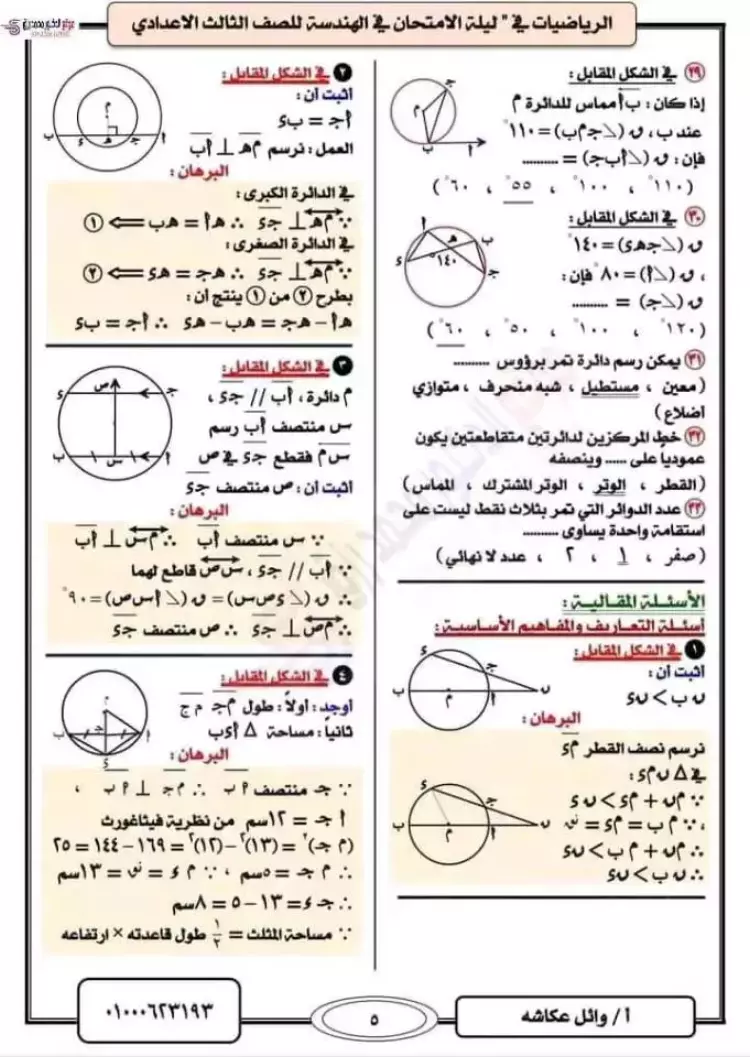 الرياضيات في " ليلة الامتحان في الهندسة للصف الثالث الاعدادي
٢٩ في الشكل المقابل :
إذا كان : ب أ مماس للدائرة م
عند ب ، ق (∠ جـ م ب) = ١١٠°
فإن : ق (∠ أ ب جـ) = .........
(١١٠° ، ١٠٠° ، ٥٥° ، ٦٠°)
٣٠ في الشكل المقابل :
ق (∠ جـ هـ ء) = ١٤٠°
، ق (∠ أ) = ٨٠° فإن :
ق (∠ جـ) = .........
(١٢٠° ، ١٠٠° ، ٥٠° ، ٦٠°)
٣١ يمكن رسم دائرة تمر برؤوس .........
( معين ، مستطيل ، شبه منحرف ، متوازي
اضلاع )
٣٢ خط المركزين لدائرتين متقاطعتين يكون
عمودياً على ...... وينصفه
( القطر ، الوتر ، الوتر المشترك ، المماس )
٣٣ عدد الدوائر التي تمر بثلاث نقط ليست على
استقامة واحدة يساوى .........
( صفر ، ١ ، ٢ ، عدد لا نهائي )
الأسئلة المقالية :
أسئلة التعاريف والمفاهيم الأساسية :
١ في الشكل المقابل :
أثبت أن :
ن ب > ن ء
البرهان :
نرسم نصف القطر م ء
في ∆ ن م ء :
∵ م ن + م ء > ن ء
، ∵ م ب = م ء = نق
∴ م ن + م ب > ن ء
∴ ن ب > ن ء
٢ في الشكل المقابل :
أثبت أن :
أ جـ = ب ء
العمل : نرسم م هـ ⊥ أ ب
البرهان :
في الدائرة الكبرى :
∵ م هـ ⊥ جـ ء ∴ هـ أ = هـ ب ⇐ ١
في الدائرة الصغرى :
∵ م هـ ⊥ جـ ء ∴ هـ جـ = هـ ء ⇐ ٢
بطرح ٢ من ١ ينتج أن :
هـ أ - هـ جـ = هـ ب - هـ ء ∴ أ جـ = ب ء
٣ في الشكل المقابل :
م دائرة ، أ ب // جـ ء ،
س منتصف أ ب رسم
س م فقطع جـ ء في ص
أثبت أن : ص منتصف جـ ء
البرهان :
∵ س منتصف أ ب ∴ م س ⊥ أ ب
∵ أ ب // جـ ء ، س ص قاطع لهما
∴ ق (∠ ء ص س) = ق (∠ أ س ص) = ٩٠°
∴ م ص ⊥ جـ ء ∴ ص منتصف جـ ء
٤ في الشكل المقابل :
أوجد : أولاً : طول م جـ م ج
ثانياً : مساحة ∆ أ ء ب
البرهان :
∵ جـ منتصف أ ب ∴ م جـ ⊥ أ ب ،
أ جـ = ١٢سم من نظرية فيثاغورث
(م جـ)² = (١٣)² - (١٢)² = ١٦٩ - ١٤٤ = ٢٥
∴ م جـ = ٥سم ، ∵ م ء = نق = ١٣سم
∴ جـ ء = ١٣ - ٥ = ٨سم
∵ مساحة المثلث = ١/٢ طول قاعدته × ارتفاعه
أ / وائل عكاشه
٥
٠١٠٠٠٦٢٣١٩٣